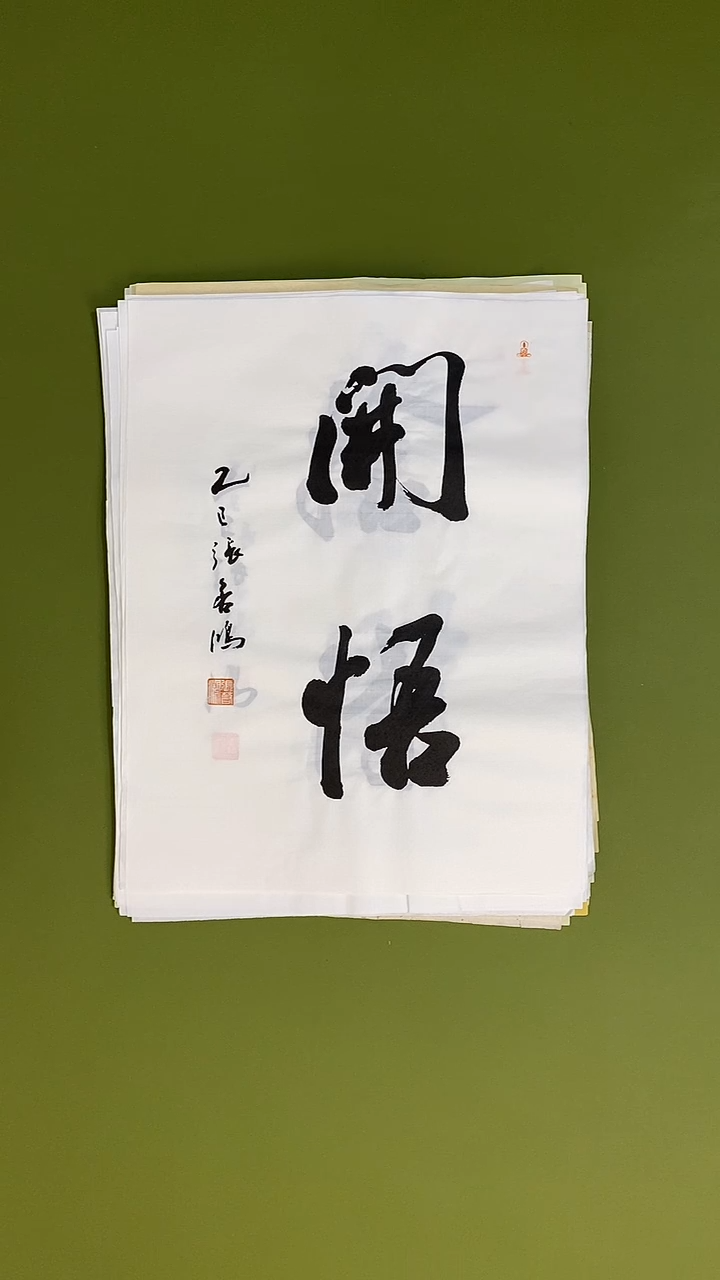 開悟
乙巳張善鴻